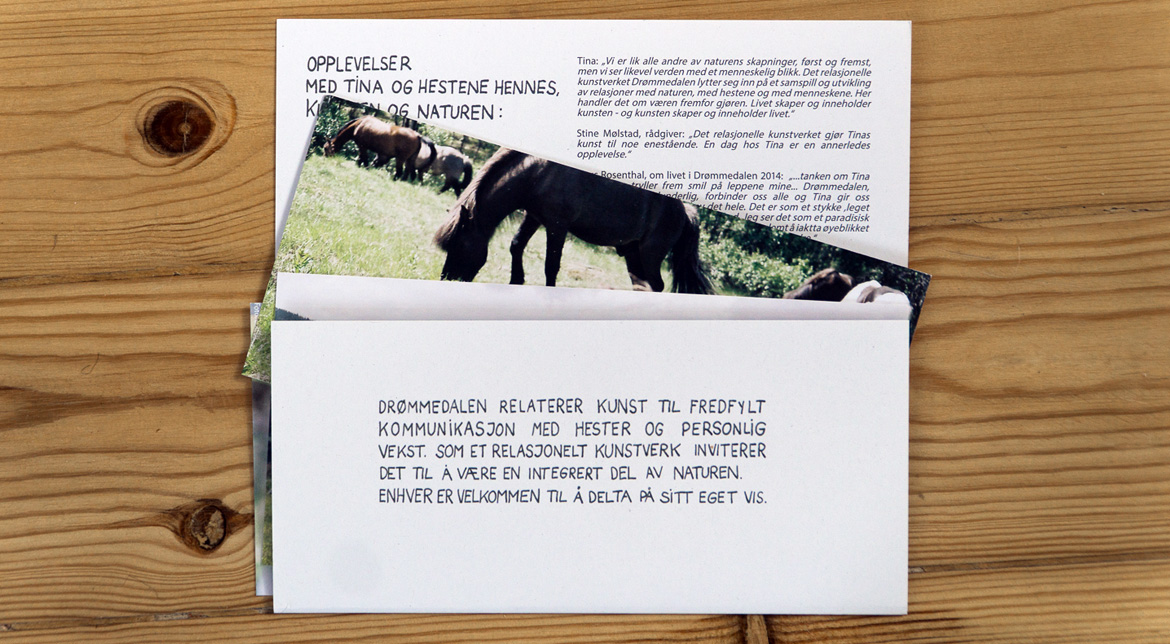 OPPLEVELSER
MED TINA OG HESTENE HENNES,
OG NATUREN :
Tina: „Vi er lik alle andre av naturens skapninger, først og fremst,
men vi ser likevel verden med et menneskelig blikk. Det relasjonelle
kunstverket Drømmedalen lytter seg inn på et samspill og utvikling
av relasjoner med naturen, med hestene og med menneskene. Her
handler det om væren fremfor gjøren. Livet skaper og inneholder
kunsten - og kunsten skaper og inneholder livet.“
Stine Mølstad, rådgiver: „Det relasjonelle kunstverket gjør Tinas
kunst til noe enestående. En dag hos Tina er en annerledes
opplevelse.“
Rosenthal, om livet i Drømmedalen 2014: „...tanken om Tina
tryller frem smil på leppene mine... Drømmedalen,
forbinder oss alle og Tina gir oss
det hele. Det er som et stykke ‚leget
Jeg ser det som et paradisisk
å iaktta øyeblikket
DRØMMEDALEN RELATERER KUNST TIL FREDFYLT
KOMMUNIKASJON MED HESTER OG PERSONLIG
VEKST. SOM ET RELASJONELT KUNSTVERK INVITERER
DET TIL Å VÆRE EN INTEGRERT DEL AV NATUREN.
ENHVER ER VELKOMMEN TIL Å DELTA PÅ SITT EGET VIS.